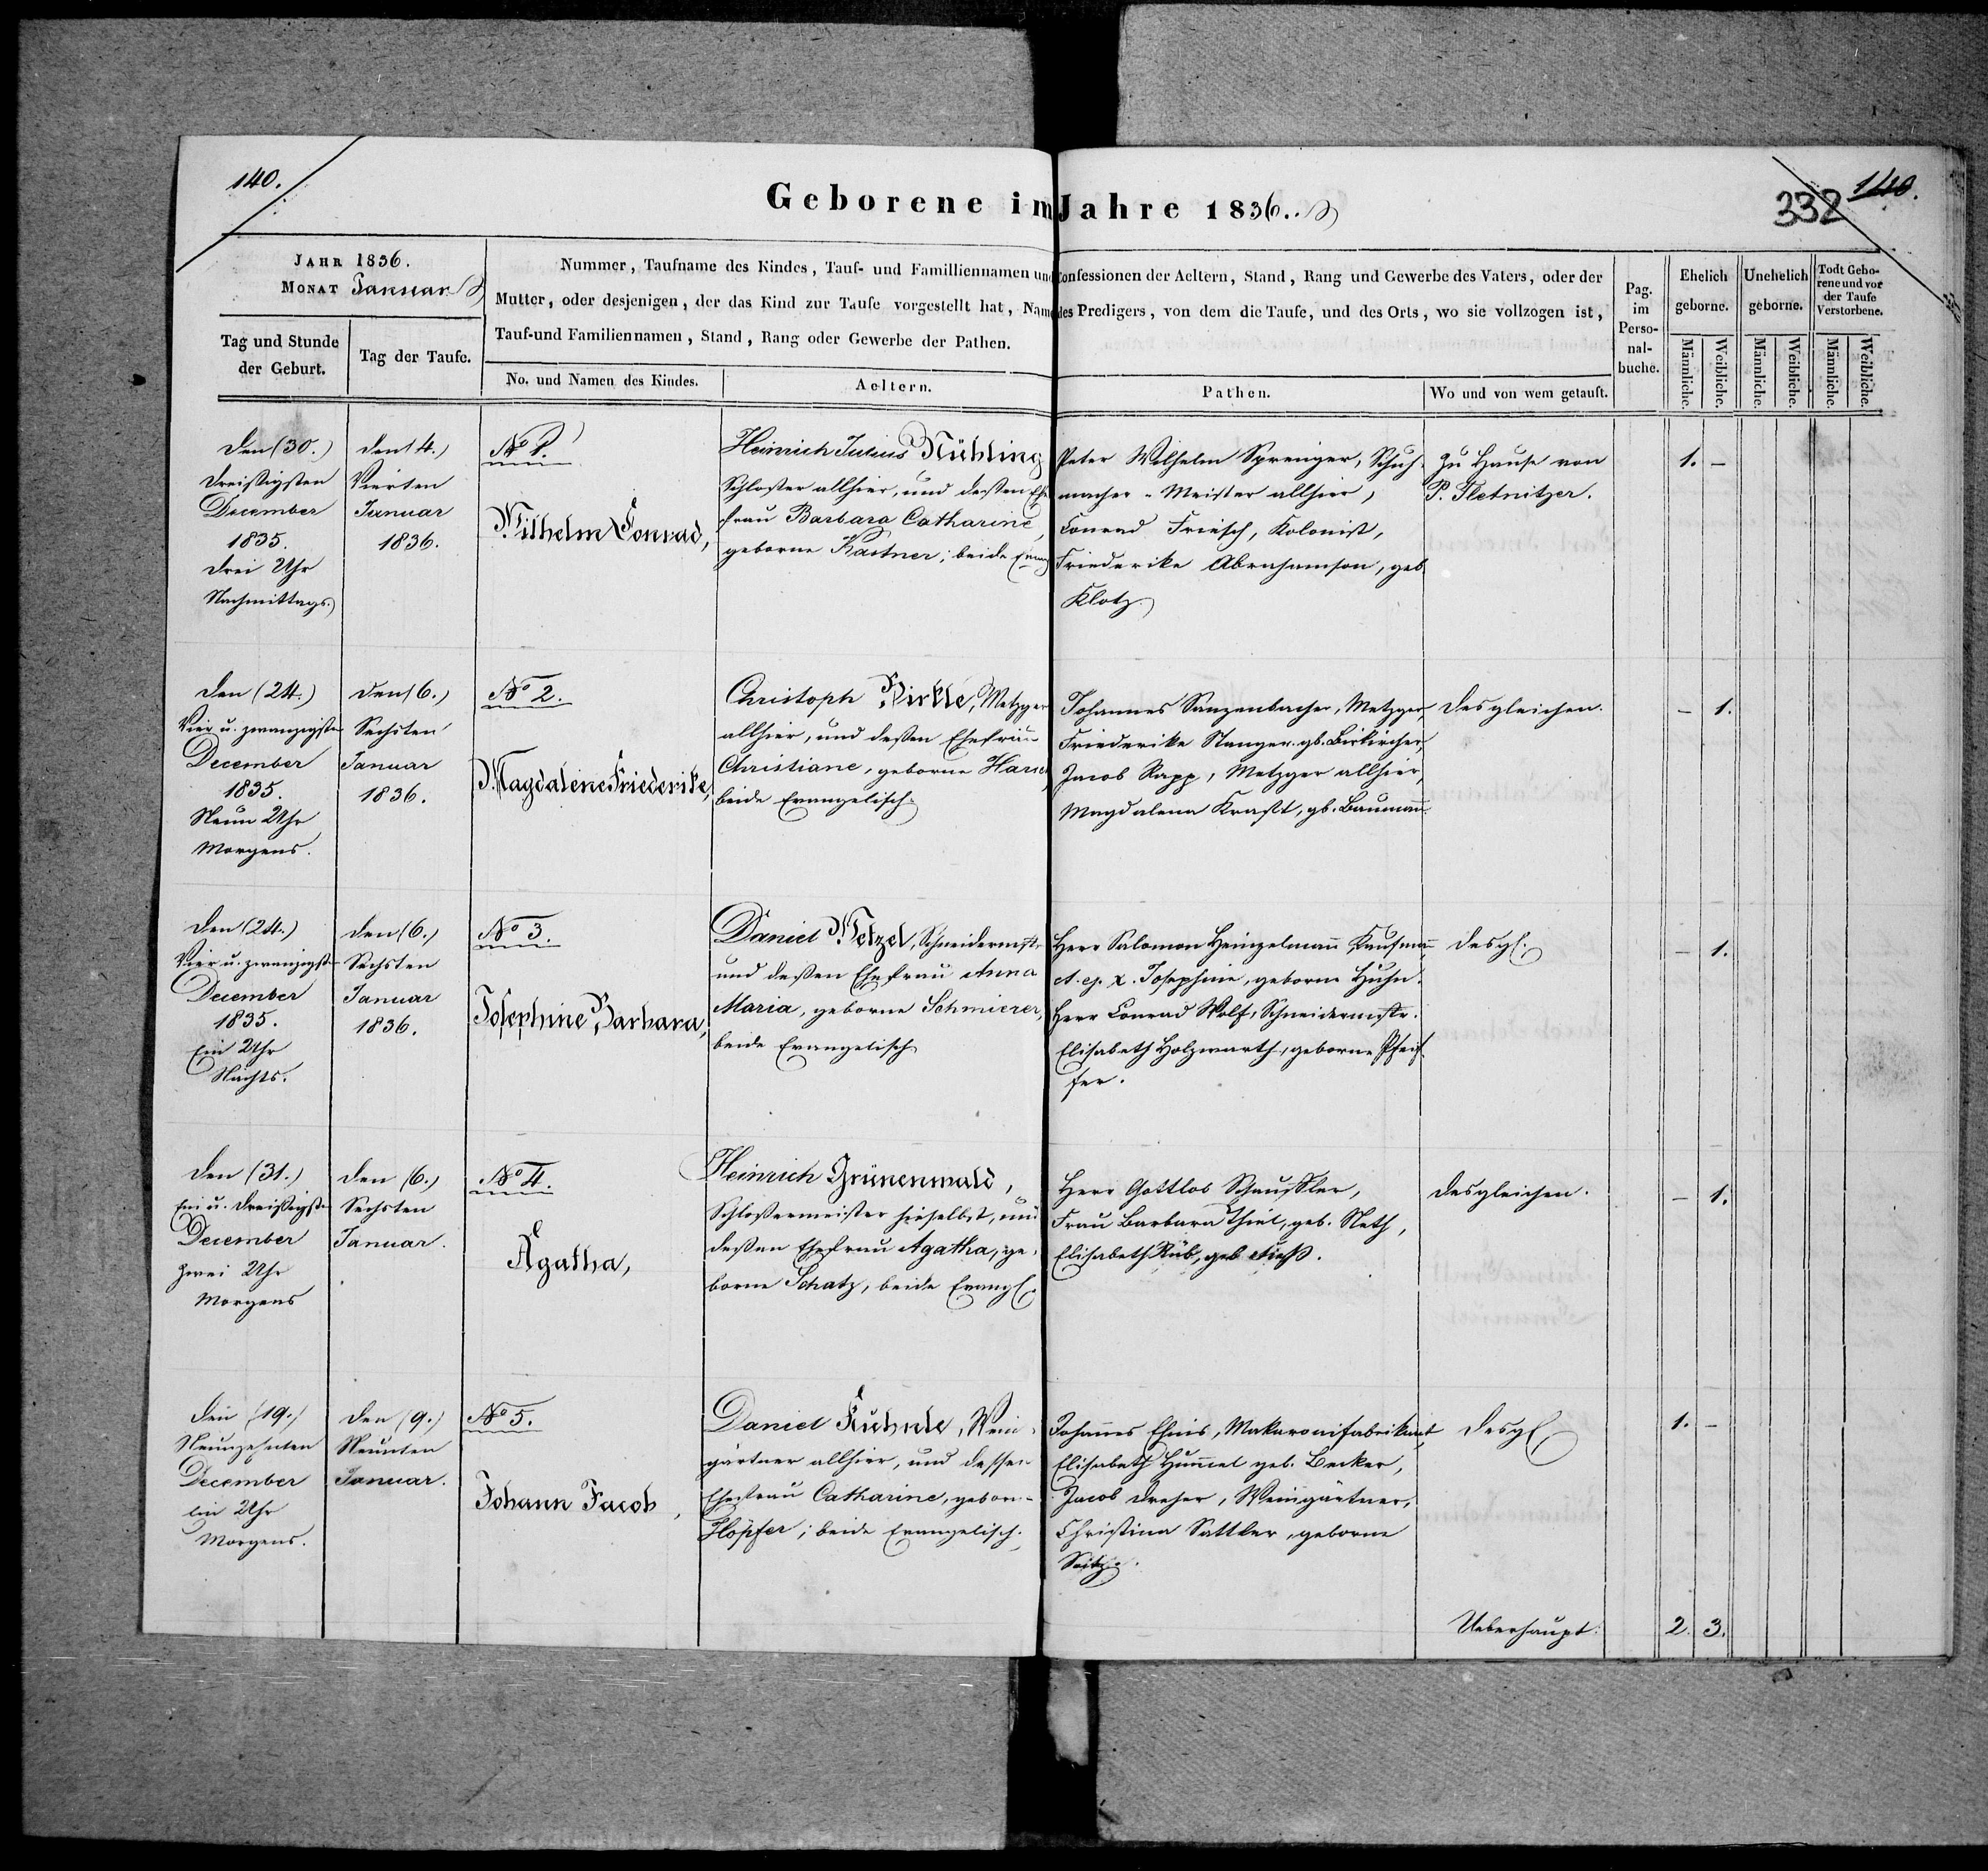 140.
Geborene im Jahre 1836.
332
140.
JAHR 1836.
MONAT Januar
Tag und Stunde der Geburt.
Tag der Taufe.
Nummer, Taufname des Kindes, Tauf- und Familliennamen und Confessionen der Aeltern, Stand, Rang und Gewerbe des Vaters, oder der
Mutter, oder desjenigen, der das Kind zur Taufe vorgestellt hat, Name des Predigers, von dem die Taufe, und des Orts, wo sie vollzogen ist,
Tauf-und Familiennamen, Stand, Rang oder Gewerbe der Pathen.
No. und Namen des Kindes.
Aeltern.
Pathen.
Wo und von wem getauft.
Pag. im Perso-nal-buche.
Ehelich geborne.
Unehelich geborne.
Todt Gebo-rene und vor der Taufe Verstorbene.
Männliche.
Weibliche.
Männliche.
Weibliche.
Männliche.
Weibliche.
den (30.)
dreißigsten
December
1835.
drei Uhr
Nachmittags.
den (4.)
Vierten
Januar
1836.
No 1.
Wilhelm Conrad,
Heinrich Julius Rühling
Schlosser allhier, und deßen Ehe
frau Barbara Catharine,
geborne Kastner; beide Evang
Peter Wilhelm Sprenger, Schuh-
macher-Meister allhier,
Conrad Friesch, Kolonist,
Friederike Abrahamson, geb
Klotz.
Zu Hause von
P. Fletnitzer.
1. -
den (24.)
Vier u. zwanzigsten
December
1835.
Neun Uhr
Morgens.
den (6.)
Sechsten
Januar
1836.
No 2.
Magdalene Friederike,
Christoph Pirkle, Metzger
allhier, und deßen Ehefrau
Christiane, geborne Harsch
beide Evangelisch.
Johannes Sanzenbacher, Metzger,
Friederike Stanger gb. Birkircher,
Jacob Rapp, Metzger allhier,
Magdalena Kraft, gb. Baumann.
desgleichen.
- 1.
den (24.)
Vier u. zwanzigsten
December
1835.
Ein Uhr
Nachts.
den (6.)
Sechsten
Januar
1836.
No 3.
Josephine Barbara,
Daniel Wetzel, Schneidermstr
und deßen Ehefrau Anna
Maria, geborne Schmierer,
beide Evangelisch
Herr Salomon Heinzelmann Kaufmann,
et. ej. x. Josephine, geborne Huhn.
Herr Conrad Wolf, Schneidermstr.
Elisabeth Holzwarth, geborne Pfeif-
fer.
desgl.
- 1.
den (31.)
Ein u. dreißigsten
December
zwei Uhr
Morgens
den (6.)
Sechsten
Januar.
No 4.
Agatha,
Heinrich Grünenwald,
Schloßermeister hieselbst, und
deßen Ehefrau Agatha, ge-
borne Schatz, beide Evangl.
Herr Gottlob Schaufler,
Frau Barbara Thiel, geb. Neth,
Elisabeth Rüb, geb.
desgleichen.
- 1.
den (19.)
Neunzehnten
December
ein Uhr
Morgens.
den (9.)
Neunten
Januar.
No 5.
Johann Jacob,
Daniel Kuhnle, Wein-
gärtner allhier, und dessen
Ehefrau Catharine, geborne
Höpfer; beide Evangelisch.
Johannes Ehnis, Makaronifabrikant,
Elisabeth Hummel geb. Becker,
Jacob Dreher, Weingärtner,
Christina Sattler, geborne
Seitz.
desgl
1. -
Ueberhaupt:
2. 3.